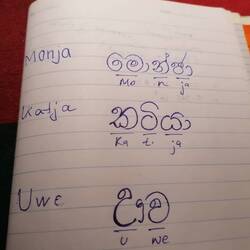 Monja මොන්ජා
Mo n ja
Katja කටියා
Ka ti ja
Uwe ඌව
U we